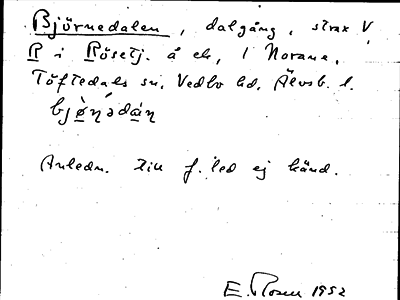 Björnedalen, dalgång, strax V
R i Rösetj. å ek, l Norane,
Töftedals sn, Vedbo hd, Älvsb. l.
bjø̀ṇədáṇ
Anledn. till f. led ej känd.
E. Rosen 1952